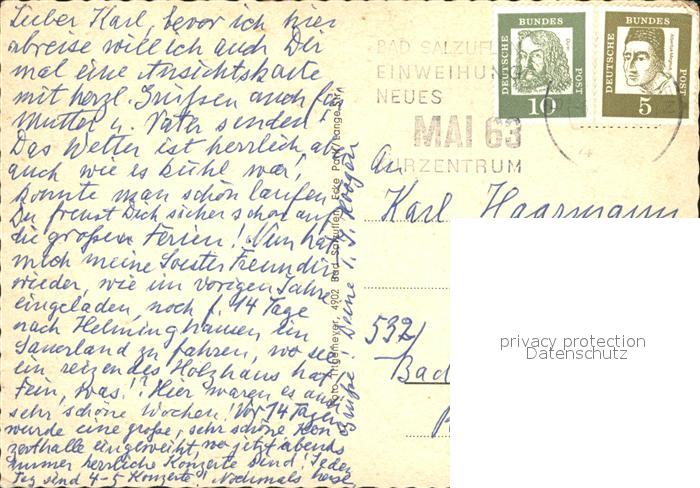 Lieber Karl, bevor ich hier
abreise will ich auch Dir
mal eine Ansichtskarte
mit herzl. Grüßen auch für
Mutter u. Vater senden!
Das Wetter ist herrlich
auch wie es kühl war,
konnte man schön laufen
Du freust Dich sicher schon auf
die großen Ferien! Nun hat
mich meine Soester Freundin
wieder, wie im vorigen Jahre
eingeladen, noch f. 14 Tage
nach Helminghausen im
Sauerland zu fahren, wo sie
ein reizendes Holzhaus hat
Fein, was!? Hier waren es auch
sehr schöne Wochen! Vor 14 Tagen
wurde eine große, sehr schöne Kon
zerthalle eingeweiht, wo jetzt abends
immer herrliche Konzerte sind! Jeden
Tag sind 4-5 Konzerte! Nochmals herzl.
Grüße! Deine
Foto 4902 Bad Salzuflen, Ecke
BAD SALZUFLEN
EINWEIHUNG
NEUES
MAI 63
KURZENTRUM
DEUTSCHE BUNDES POST
10
DEUTSCHE BUNDES POST
5
An
Karl Haarmann
532
Bad
privacy protection
Datenschutz